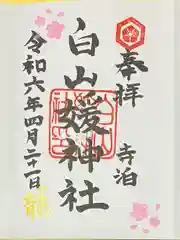 奉拝 寺泊
白山媛神社
令和六年四月二十一日